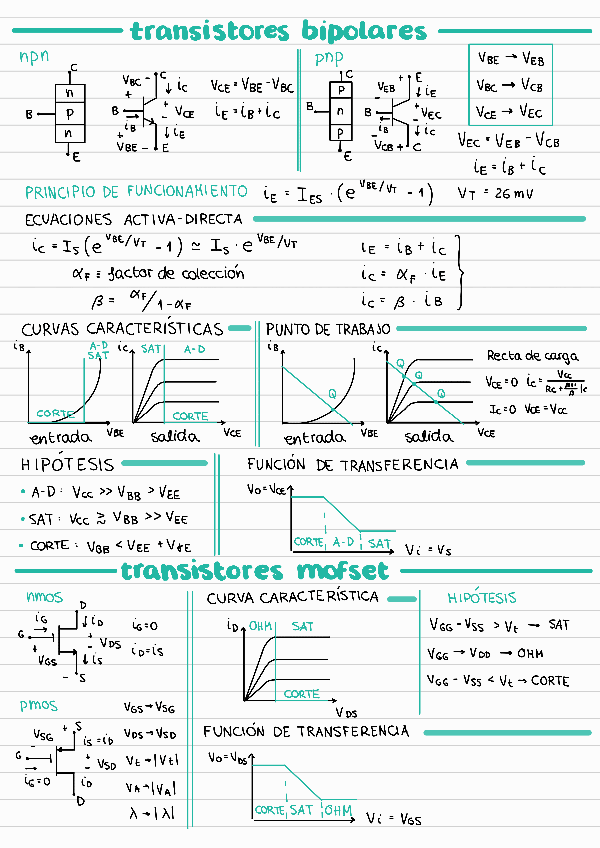 transistores bipolares
npn
C
n
B
p
n
E
VBC - C
+ ↓ iC
B + VCE
iB -
+ ↓ iE
VBE - E
VCE = VBE - VBC
iE = iB + iC
pnp
C
p
B
n
p
E
+ E
VEB ↓ iE
- +
B VEC
iB -
- ↓ iC
VCB + C
VBE → VEB
VBC → VCB
VCE → VEC
VEC = VEB - VCB
iE = iB + iC
PRINCIPIO DE FUNCIONAMIENTO iE = IES · (e^VBE/VT - 1) VT = 26 mV
ECUACIONES ACTIVA-DIRECTA
iC = IS (e^VBE/VT - 1) ≃ IS · e^VBE/VT
αF ≡ factor de colección
β = αF/1-αF
iE = iB + iC
iC = αF · iE
iC = β · iB
CURVAS CARACTERÍSTICAS
iB
A-D
SAT
CORTE
VBE
entrada
iC
SAT A-D
CORTE
VCE
salida
PUNTO DE TRABAJO
iB
Q
VBE
entrada
iC
Q
Q
Q
VCE
salida
Recta de carga
VCE=0 iC=VCC
IC=0 VCE=VCC
HIPÓTESIS
• A-D: VCC >> VBB > VEE
• SAT: VCC ≳ VBB >> VEE
• CORTE: VBB < VEE + VγE
FUNCIÓN DE TRANSFERENCIA
Vo=VCE
CORTE A-D SAT
Vi = VS
transistores mofset
nmos
D
iG ↓ iD
→ +
G VDS
+ -
VGS ↓ iS
- S
iG=0
iD=iS
pmos
+ S
VSG iS=iD
- +
G VSD
-
iG=0 iD
D
VGS→VSG
VDS→VSD
Vt→|Vt|
VA→|VA|
λ→|λ|
CURVA CARACTERÍSTICA
iD OHM SAT
CORTE
VDS
HIPÓTESIS
VGG - VSS > Vt → SAT
VGG → VDD → OHM
VGG - VSS < Vt → CORTE
FUNCIÓN DE TRANSFERENCIA
Vo=VDS
CORTE SAT OHM
Vi = VGS